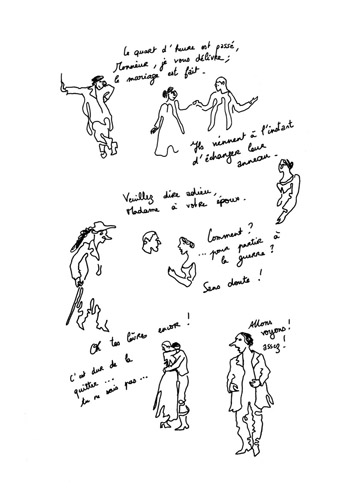 Le quart d'heure est passé,
Monsieur, je vous délivre;
le mariage est fait.
Ils viennent à l'instant
d'échanger leur
anneau.
Veuillez dire adieu,
Madame à votre époux.
Comment ?
... pour partir à
la guerre ?
Sans doute !
Oh tes lèvres encor !
C'est dur de la
quitter ...
tu ne sais pas ...
Allons
voyons !
assez !